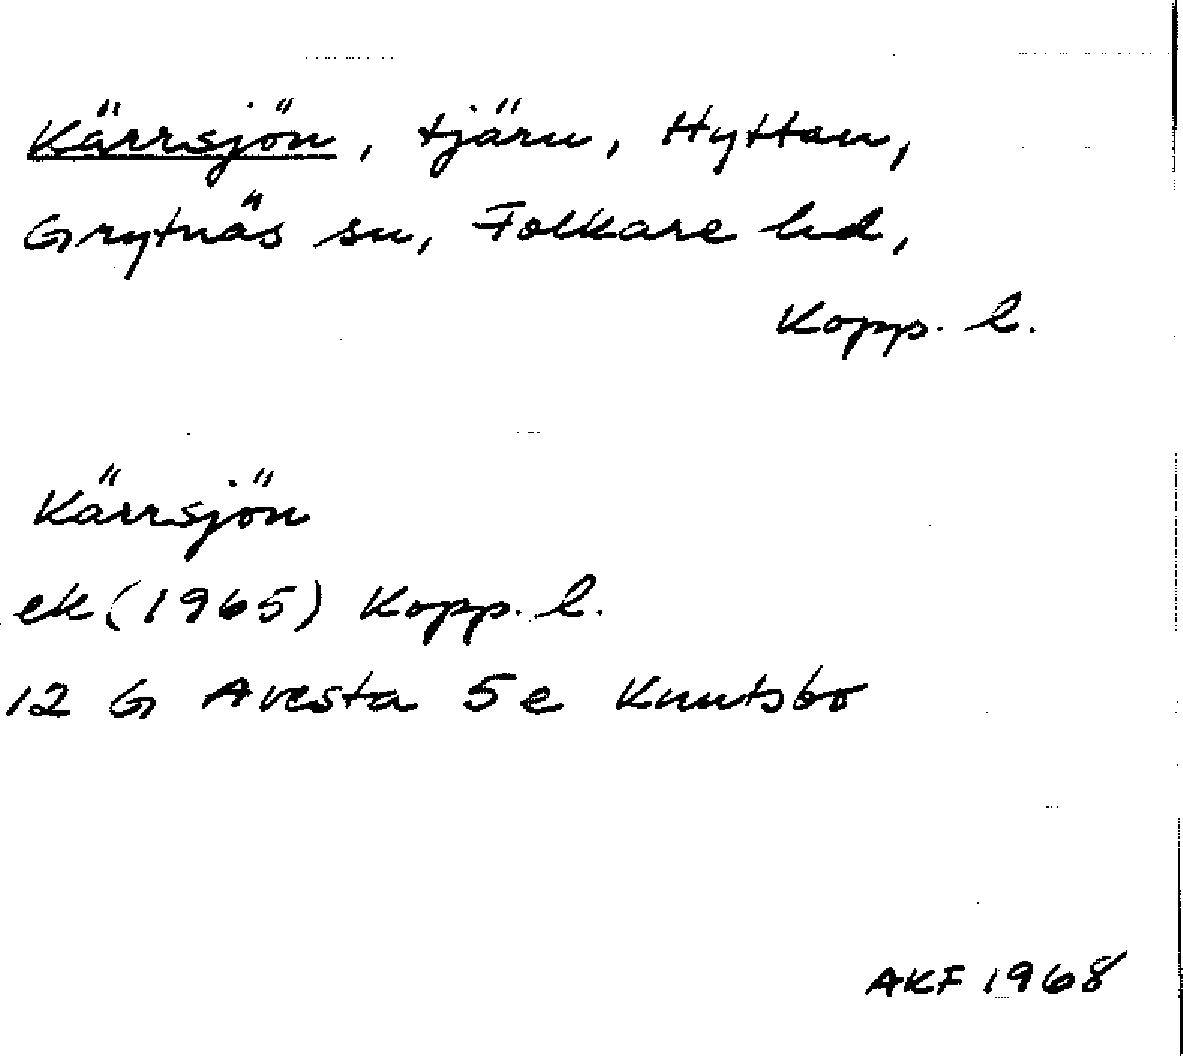 Kärrsjön, tjärn, Hyttan,
Grytnäs sn, Folkare hd,
Kopp. l.
Kärrsjön
ek (1965) Kopp. l.
12 G Avesta 5 e Knutsbo
AKF 1968